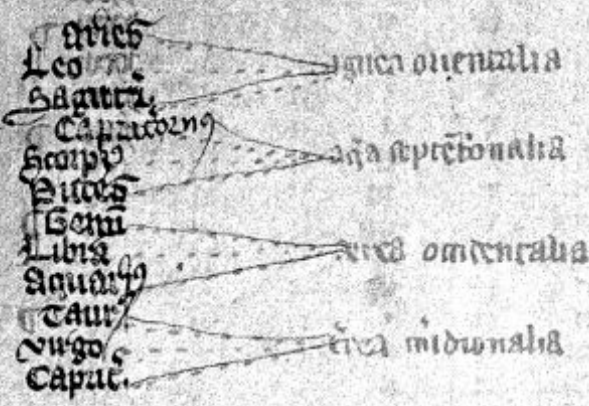 Aries
Leo
Sagittari
ignea orientalia
Capricornus
Scorpi
Pisces
aqa septetonalia
Gemi
Libra
Aquarius
aerea occidentalia
Taur
Virgo
Capric
terrea midionalia